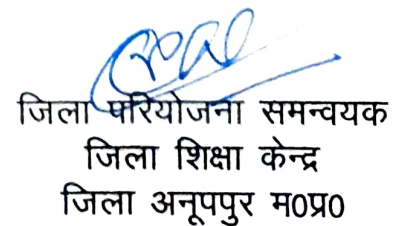 जिला परियोजना समन्वयक
जिला शिक्षा केन्द्र
जिला अनूपपुर म0प्र0